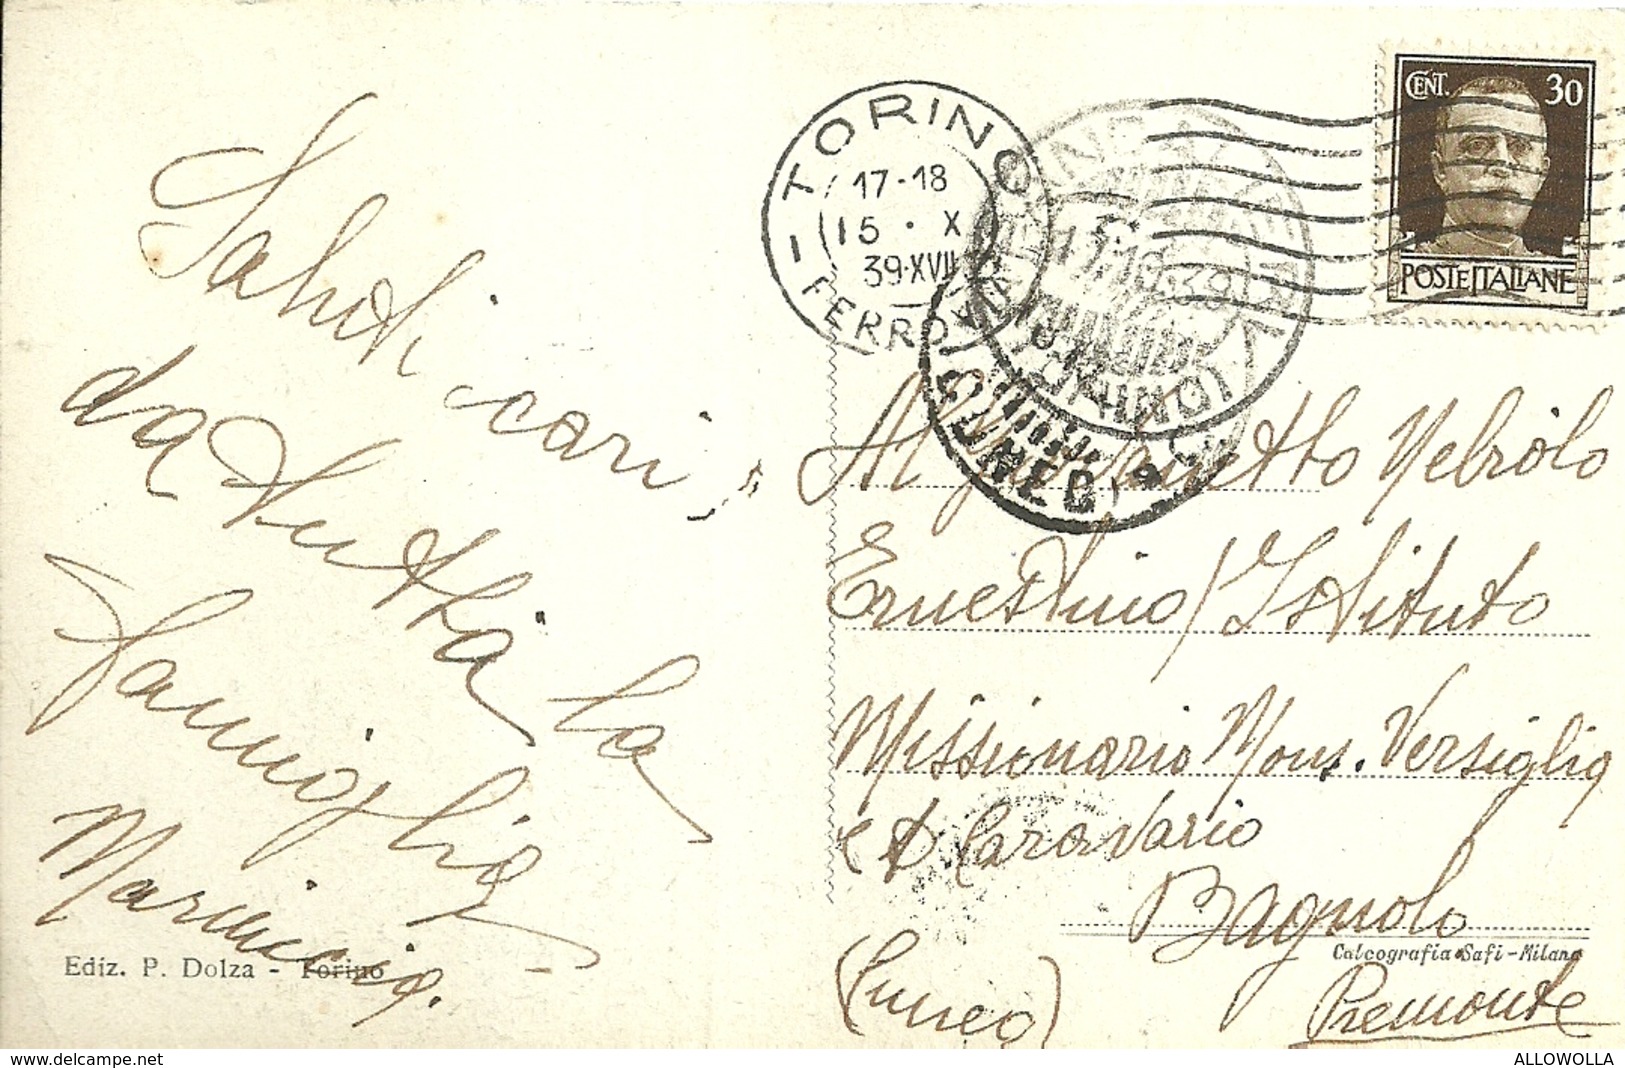 Saluti cari
da tutta la
famiglia
Mariuccia.
Ediz. P. Dolza - Torino
TORINO
17-18
15 · X
39·XVII
FERROVIA
BAGNOLO PIEMONTE
17.10.39
CUNEO
CENT. 30
POSTE ITALIANE
Al Giovanetto Nebiolo
Ernestino / Istituto
Missionario Mons. Versiglia
e D Caravario
Bagnolo
Calcografia Safi-Milano
(Cuneo)
Piemonte
ALLOWOLLA